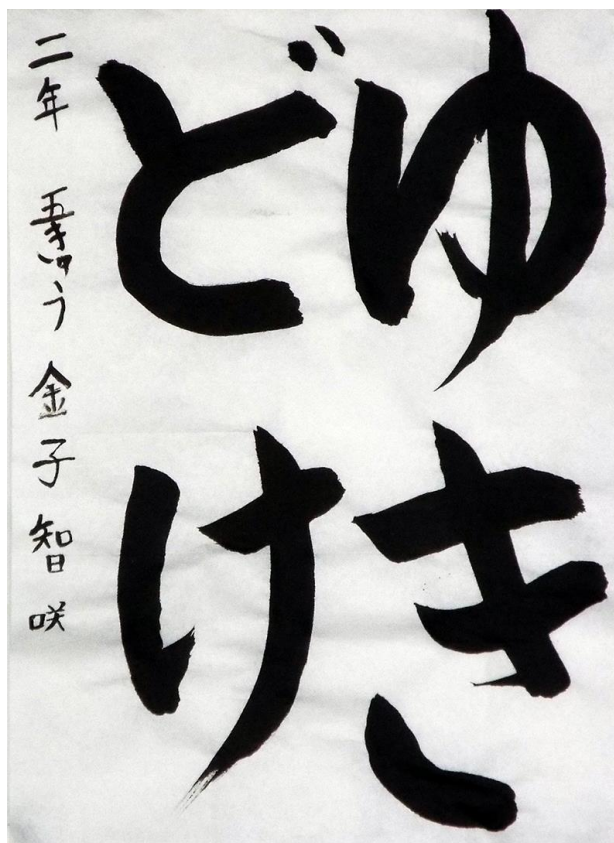 ゆき
どけ
二年 五きゅう 金子智咲